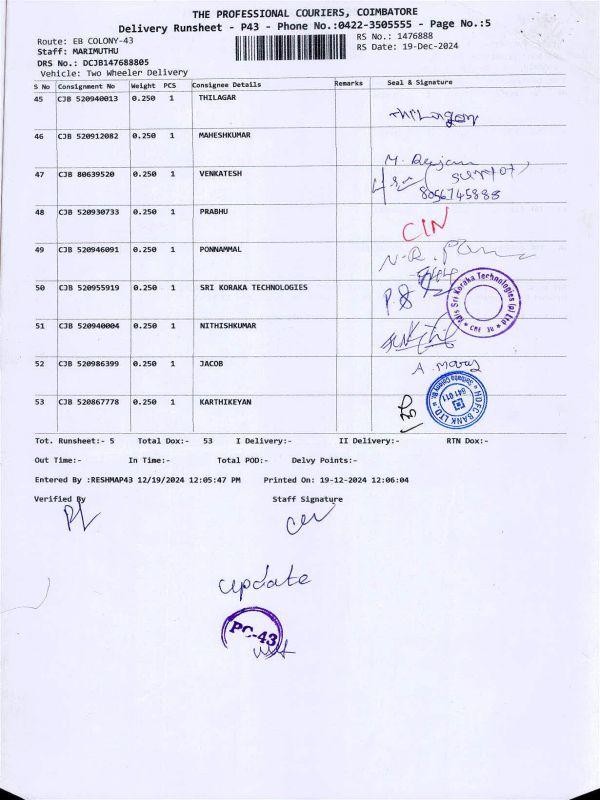 THE PROFESSIONAL COURIERS, COIMBATORE
Delivery Runsheet - P43 - Phone No.:0422-3505555 - Page No.:5
Route: EB COLONY-43
RS No.: 1476888
Staff: MARIMUTHU
RS Date: 19-Dec-2024
DRS No.: DCJB147688805
Vehicle: Two Wheeler Delivery
S No Consignment No Weight PCS Consignee Details Remarks Seal & Signature
45 CJB 520940013 0.250 1 THILAGAR
46 CJB 520912082 0.250 1 MAHESHKUMAR
47 CJB 80639520 0.250 1 VENKATESH
8056745888
48 CJB 520930733 0.250 1 PRABHU
CIN
49 CJB 520946091 0.250 1 PONNAMMAL
50 CJB 520955919 0.250 1 SRI KORAKA TECHNOLOGIES
M/s Sri Koraka Technologies (p) Ltd
51 CJB 520940004 0.250 1 NITHISHKUMAR
52 CJB 520986399 0.250 1 JACOB
53 CJB 520867778 0.250 1 KARTHIKEYAN
HDFC BANK LTD
641 011
Tot. Runsheet:- 5 Total Dox:- 53 I Delivery:- II Delivery:- RTN Dox:-
Out Time:- In Time:- Total POD:- Delvy Points:-
Entered By :RESHMAP43 12/19/2024 12:05:47 PM Printed On: 19-12-2024 12:06:04
Verified By Staff Signature
update
PC-43